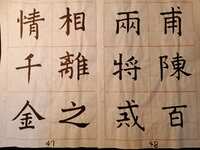 甫陳百
兩將戒
48
相離之
情千金
47